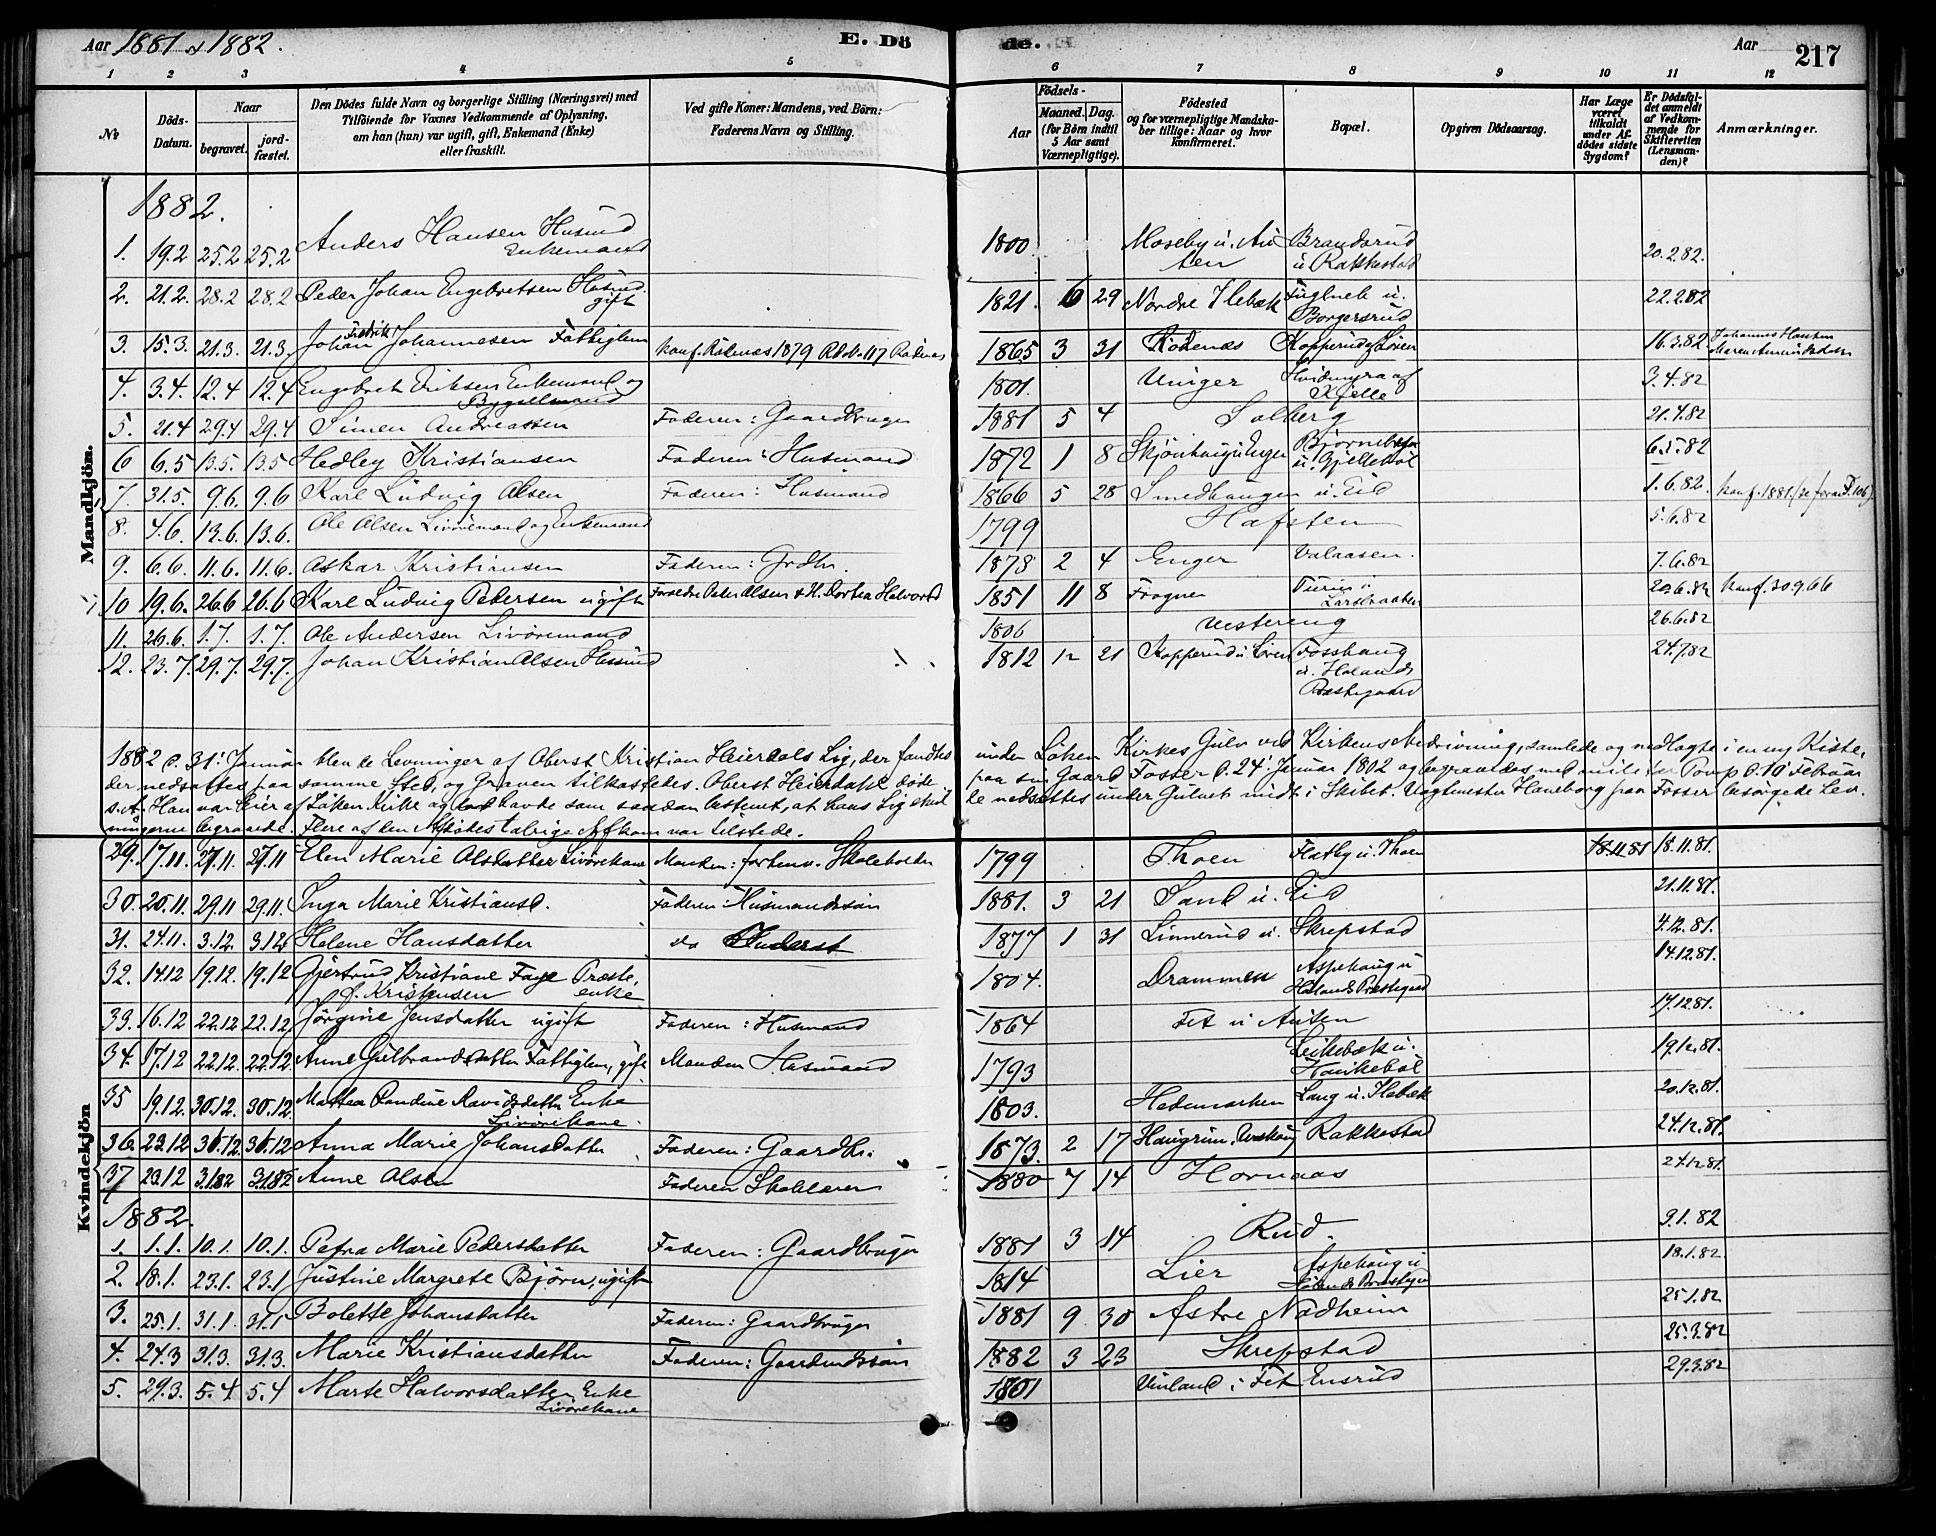 Aar 1881 & 1882. E. Dö de. Aar 217
1 2 3 4 5 6 7 8 9 10 11 12
No
Döds-Datum.
Naar
begravet.
jord-fæstet.
Den Dödes fulde Navn og borgerlige Stilling (Næringsvei) med
Tilföiende for Voxnes Vedkommende af Oplysning,
om han (hun) var ugift, gift, Enkemand (Enke)
eller fraskilt.
Ved gifte Koner: Mandens, ved Börn:
Faderens Navn og Stilling.
Födsels-
Aar
Maaned. Dag.
(for Börn indtil
5 Aar samt
Værnepligtige).
Födested
og for værnepligtige Mandska-
ber tillige: Naar og hvor
konfirmeret.
Bopæl.
Opgiven Dödsaarsag.
Har Læge
været
tilkaldt
under Af-
dödes sidste
Sygdom?
Er Dödsfal-
det anmeldt
af Vedkom-
mende for
Skifteretten
(Lensman-
den)?
Anmærkninger.
Mandkjön.
1882.
1. 19.2 25.2 25.2 Anders Hansen Husmd Enkemand 1800 Moseby u. Auten Brandsrud u. Rakkestad 20.2.82.
2. 21.2. 28.2 28.2 Peder Johan Engebretsen Husmd. gift 1821. 6 29 Nordre Ilebæk Fuglnek u. Borgersrud 22.2.82
3. 15.3. 21.3. 21.3. Johan Fredrik Johannesen Fattiglem konf. Rödenæs 1879 1865 3 31 Rödenæs Kopperud u. Lören 16.3.82 Johannes Hansen Maren Amundsdatter
4. 3.4. 12.4 12.4 Engebret Eriksen Enkemand og Bygselmand 1801. Uniger Hvidmyra af Kjelle 3.4.82
5. 21.4 29.4 29.4 Simen Andreassen Faderen: Gaardbruger 1881 5 4 Solberg 21.4.82
6 6.5 13.5. 13.5 Hedley Kristiansen Faderen: Husmand 1872 1 8 Skjönhaug u. Enger u. Gjellebøl 6.5.82
7. 31.5. 9.6. 9.6 Karl Ludvig Olsen Faderen: Husmand 1866 5 28 Smedhaugen u. Eid 1.6.82. konf. 1881
8. 4.6. 13.6. 13.6. Ole Olsen Livöremand og Enkemand 1799 Hafsten 5.6.82
9. 6.6. 11.6. 11.6. Oskar Kristiansen Faderen: Grdbr. 1878 2 4 Enger Valaasen. 7.6.82
10 19.6. 26.6 26.6 Karl Ludvig Pedersen ugift Forældre Peder Olsen & H. Dortea Halvorsd 1851 11 8 Frogner 20.6.82 konf. 30.9.66
11. 26.6. 1.7. 1.7. Ole Andersen Livöremand 1806 Vestereng 26.6.82
12. 23.7. 29.7. 29.7. Johan Kristian Olsen Husmd 1812 12 21 Kopperud u. Lören Fosshaug u. Hølands Præstegaard 24.7.82
1882 d. 31' Januar blev de Levninger af Oberst Kristian Heierdals Lig, der fandtes under Løken Kirkes Gulv ved Kirkens Nedrivning, samlede og nedlagte i en ny Kiste,
der nedsattes paa samme Sted, og Graven tilkastedes. Oberst Heierdahl døde paa sin Gaard Fosser d. 24' Januar 1802 og begravedes med militær Pomp d. 10' Februar
s. A. Han var Eier af Løken Kirke og havde som saadan bestemt, at hans Lig skulde nedsættes under Gulvet midt i Skibet. Vagtmester Haneborg paa Fosser besørgede Lev-
ningerne begravede. Flere af den Afdødes talrige Afkom var tilstede.
Kvindekjön
29. 17.11. 27.11. 27.11 Elen Marie Olsdatter Livörekone Manden: forhenv. Skoleholder 1799 Thoen Flatby u. Thoen 18.11.81 18.11.81.
30. 20.11. 29.11 29.11. Inga Marie Kristiansd. Faderen: Husmandssön 1881. 3 21 Sand u. Eid 21.11.81.
31. 24.11. 3.12. 3.12. Helene Hansdatter do Inderst 1877 1 31 Linnerud u. Skrepstad 4.12.81.
32. 14.12 19.12. 19.12 Gjertrud Kristiane Faye Præste enke f. Kristensen 1804. Drammen Aspehaug u Hølands Præstegaard 14.12.81.
33. 16.12 22.12 22.12 Jörgine Jensdatter ugift Faderen: Husmand 1864 Fet u Auten 17.12.81.
34. 17.12 22.12. 22.12. Anne Gulbrandsdatter Fattiglem, gift Manden Husmand 1793 u. 19.12.81.
35 19.12. 30.12. 30.12. Mattea Randine Enke Livörekone. 1803. Hedemarken Lang u. Ilebæk 20.12.81.
36. 23.12 30.12 30.12 Anna Marie Johansdatter Faderen: Gaardbr. 1873. 2 17 Rakkestad 24.12.81.
37 23.12 3.1.82 3.1.82 Anne Olsen Faderen Skolelærer 1880 7 14 Hornaas 24.12.81.
1882.
1. 1.1. 10.1. 10.1. Petra Marie Pedersdatter Faderen: Gaardbruger 1881 3 14 Rud. 3.1.82
2. 18.1. 23.1. 23.1 Justine Margrete Björn, ugift 1814 Lier Aspehaug u Hølands Præstegd 18.1.82.
3. 25.1. 31.1. 31.1 Bolette Johansdatter Faderen: Gaardbruger 1881 9 30 Østre Nadheim 25.1.82
4. 24.3 31.3. 31.3. Marie Kristiansdatter Faderen: Gaardmdssön 1882 3 23 Skrepstad 25.3.82
5. 29.3. 5.4. 5.4 Marte Halvorsdatter Enke Livörekone 1801 Vinland i Fet Ensrud 29.3.82